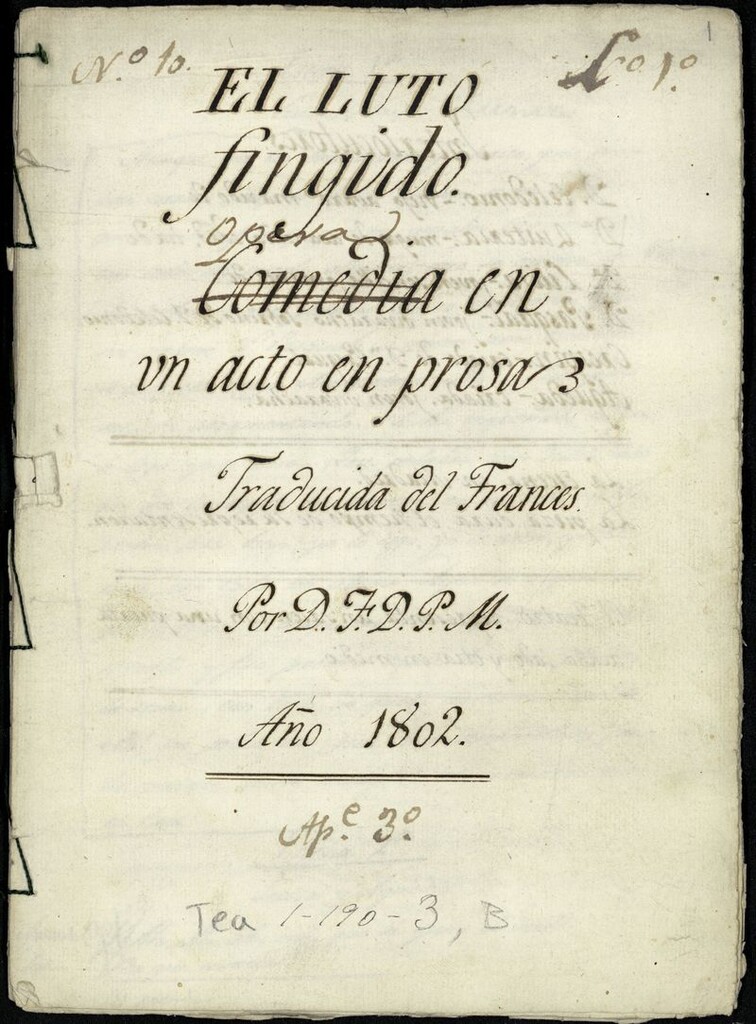 1
N.º 10.
L.º 1.º
EL LUTO
fingido.
Opera
Comedia en
vn acto en prosa
Traducida del Frances.
Por D. F. D. P. M.
Año 1802.
Ap.e 3.º
Tea 1-190-3, B